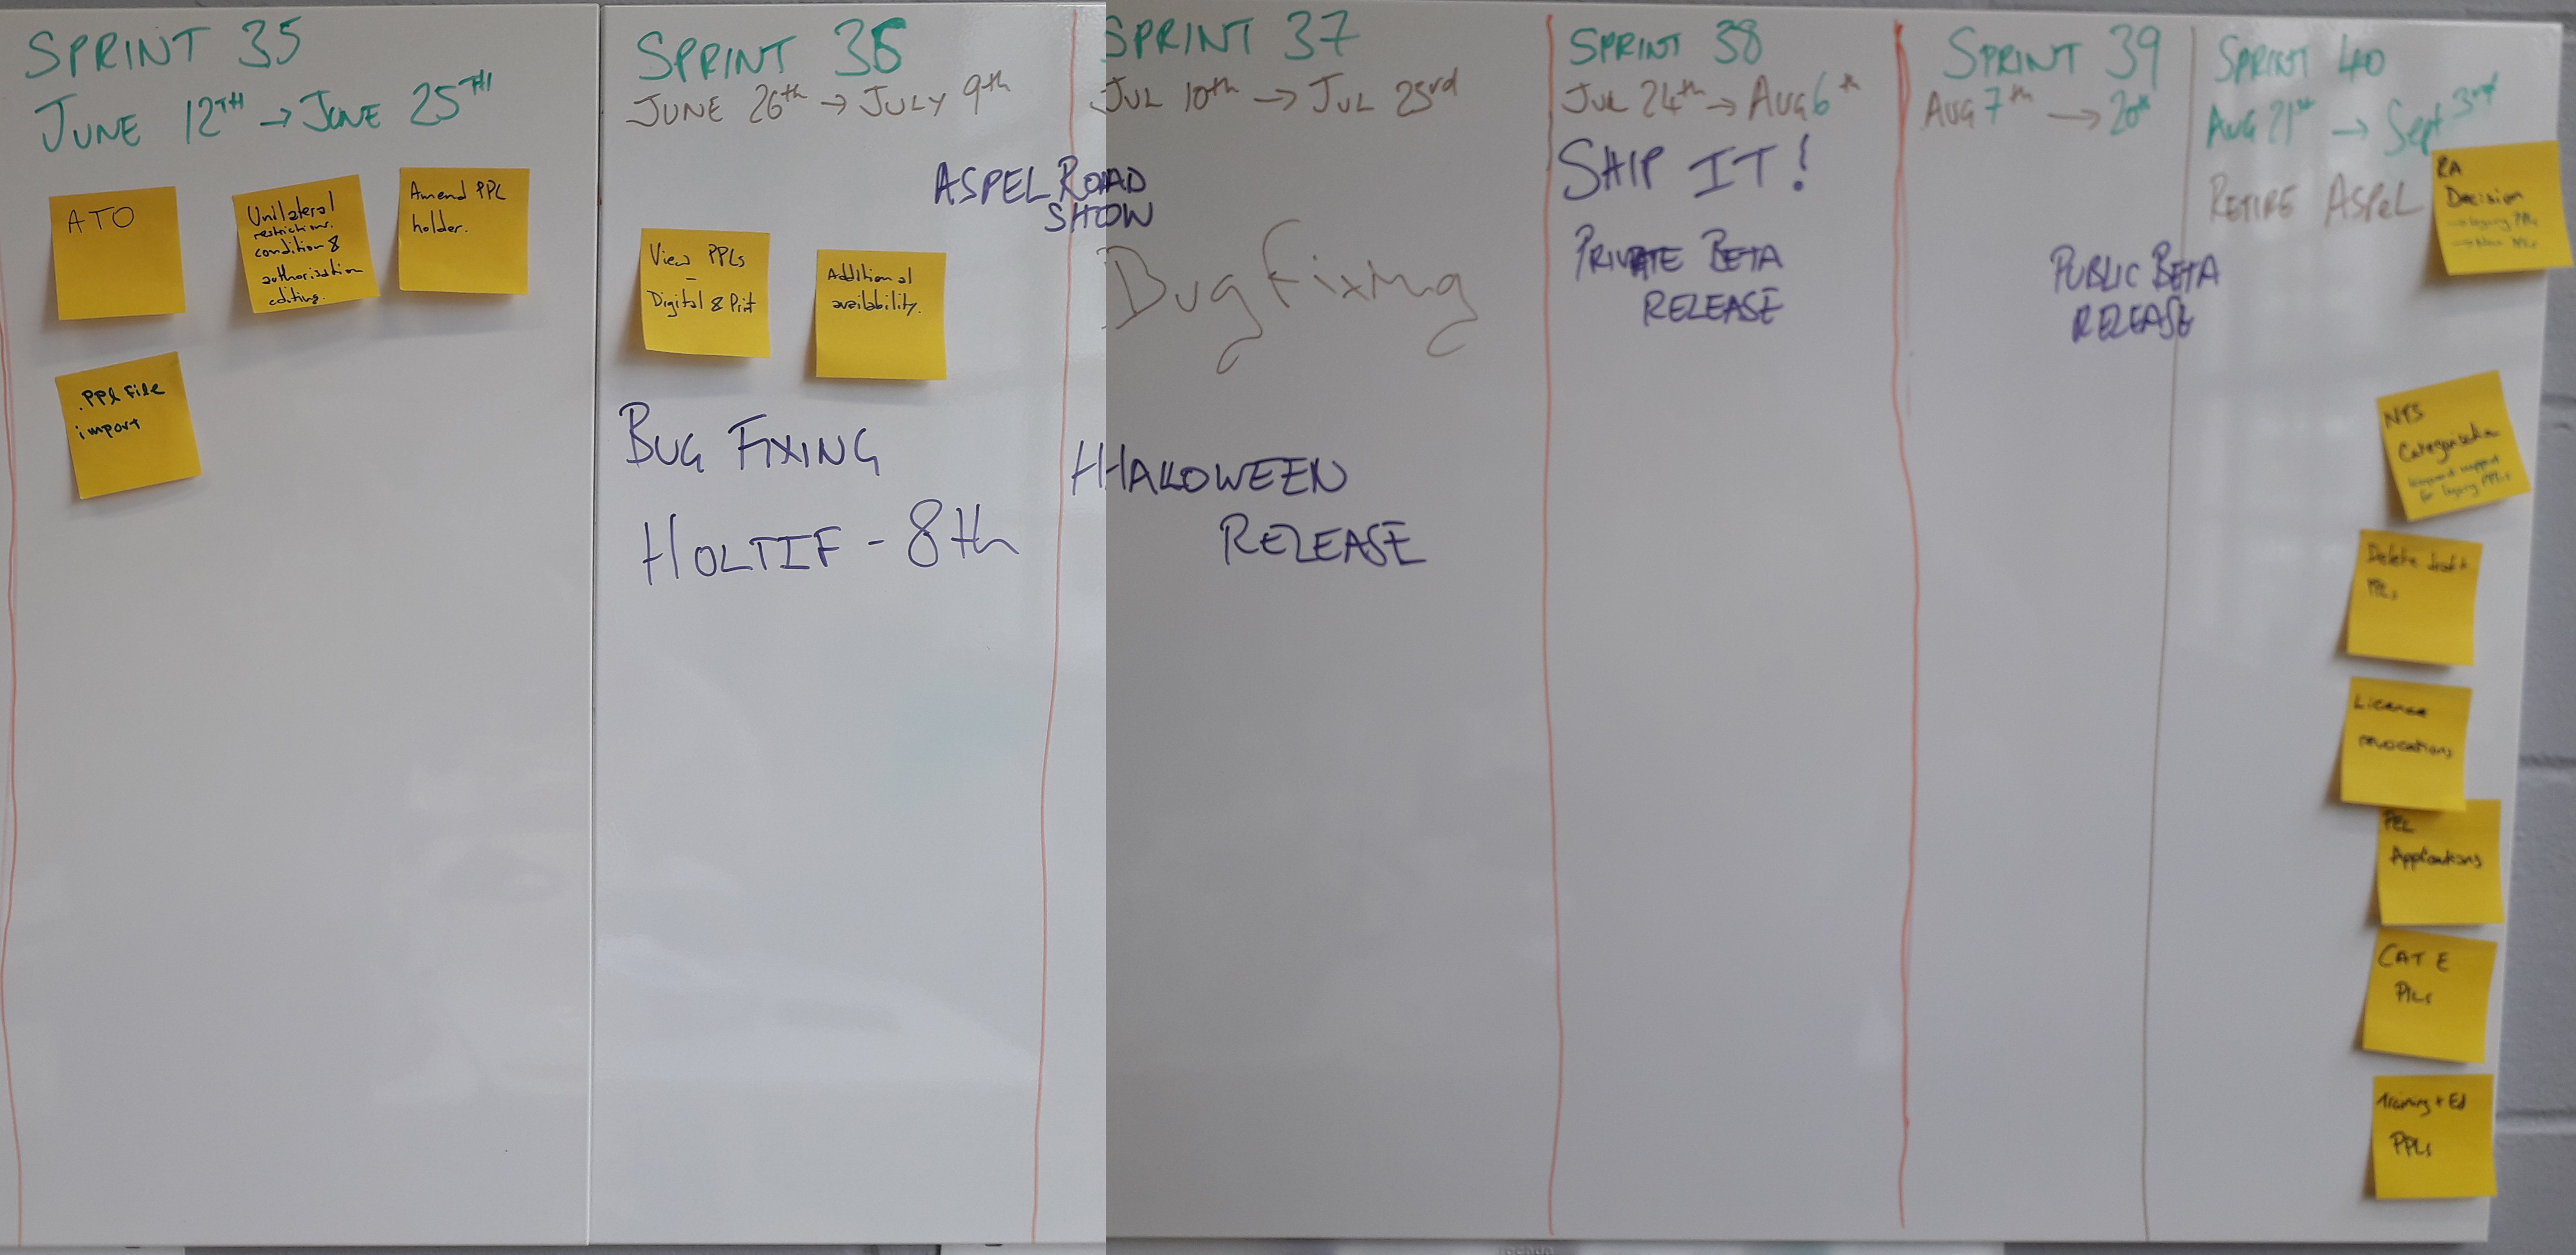 SPRINT 35
JUNE 12TH → JUNE 25TH
ATO
Unilateral
restrictions.
condition &
authorisation
editing.
Amend PPL
holder.
.PPL File
import
SPRINT 36
JUNE 26th → JULY 9th
ASPEL ROAD
SHOW
View PPLs
-
Digital & Print
Additional
availability.
BUG FIXING
HOLTIF - 8th
SPRINT 37
JUL 10th → JUL 23rd
Bug Fixing
HALLOWEEN
RELEASE
SPRINT 38
JUL 24th → AUG 6th
SHIP IT!
PRIVATE BETA
RELEASE
SPRINT 39
AUG 7th → 20th
PUBLIC BETA
RELEASE
SPRINT 40
AUG 21st → Sept 3rd
RETIRE ASPeL
RA
Decision
→ legacy PPLs
→ New PPLs
NTS
Categorisation
for legacy PPLs
Delete draft
PPLs
License
revocations
PEL
Applications
CAT E
PILs
Training + Ed
PPLs